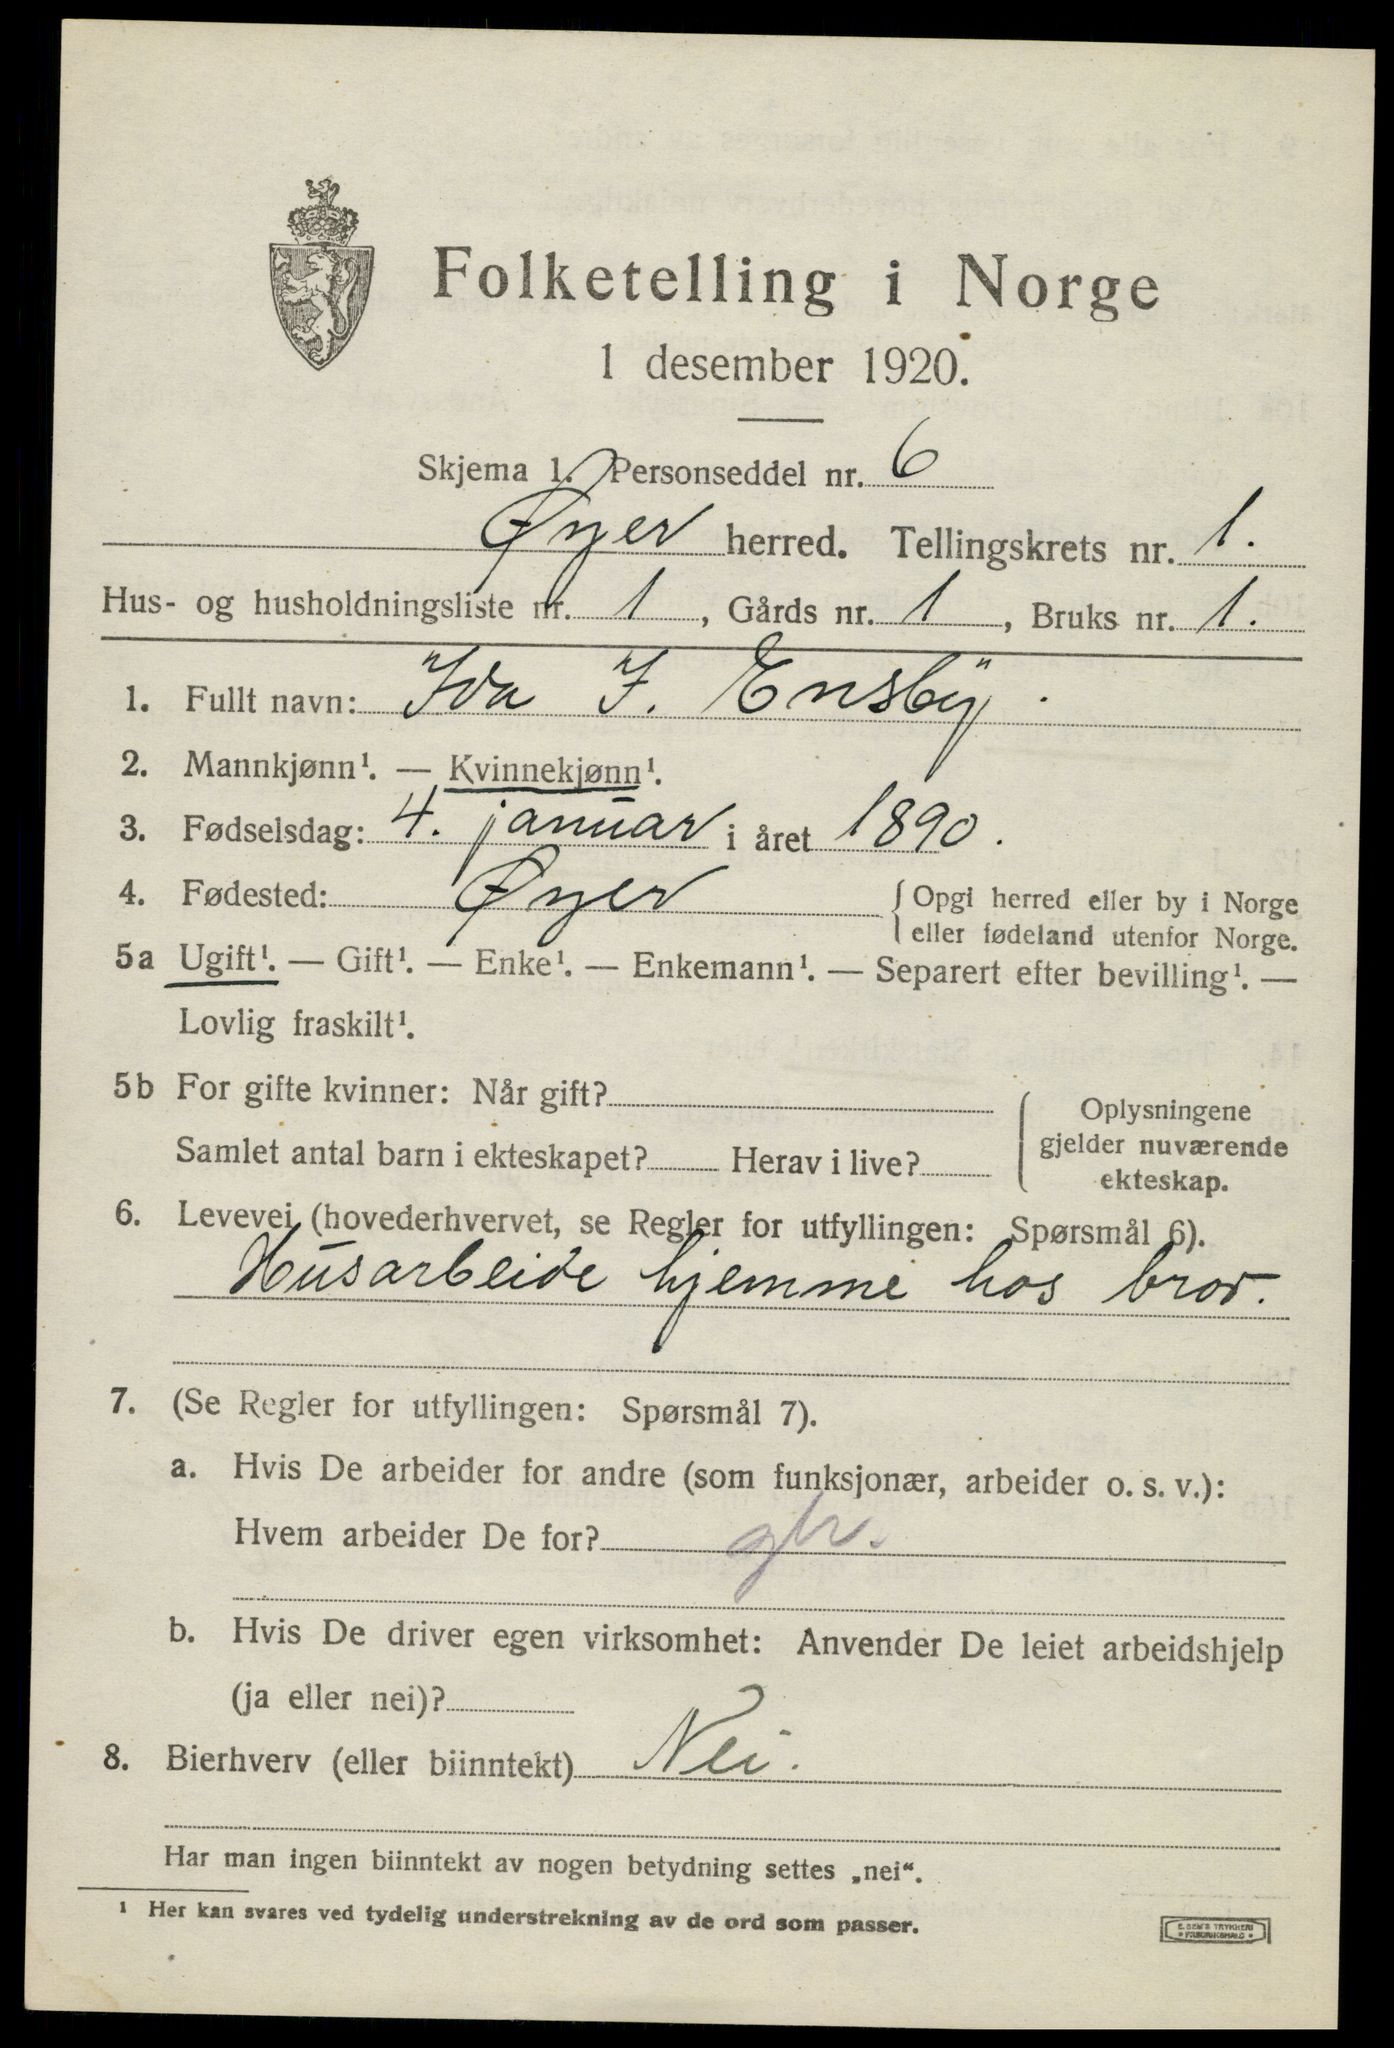 Folketelling i Norge
1 desember 1920.
Skjema 1. Personseddel nr. 6
Øyer herred. Tellingskrets nr. 1.
Hus- og husholdningsliste nr. 1, Gårds nr. 1, Bruks nr. 1.
1. Fullt navn: Ida J. Ensby.
2. Mannkjønn¹. — Kvinnekjønn¹.
3. Fødselsdag: 4. januar i året 1890.
4. Fødested: Øyer { Opgi herred eller by i Norge
eller fødeland utenfor Norge.
5a Ugift¹. — Gift¹. — Enke¹. — Enkemann¹. — Separert efter bevilling¹. —
Lovlig fraskilt¹.
5b For gifte kvinner: Når gift?
Samlet antal barn i ekteskapet? Herav i live?
Oplysningene
gjelder nuværende
ekteskap.
6. Levevei (hovederhvervet, se Regler for utfyllingen: Spørsmål 6).
Husarbeide hjemme hos bror.
7. (Se Regler for utfyllingen: Spørsmål 7).
a. Hvis De arbeider for andre (som funksjonær, arbeider o. s. v.):
Hvem arbeider De for?
b. Hvis De driver egen virksomhet: Anvender De leiet arbeidshjelp
(ja eller nei)?
8. Bierhverv (eller biinntekt) Nei.
Har man ingen biinntekt av nogen betydning settes „nei“.
¹ Her kan svares ved tydelig understrekning av de ord som passer.